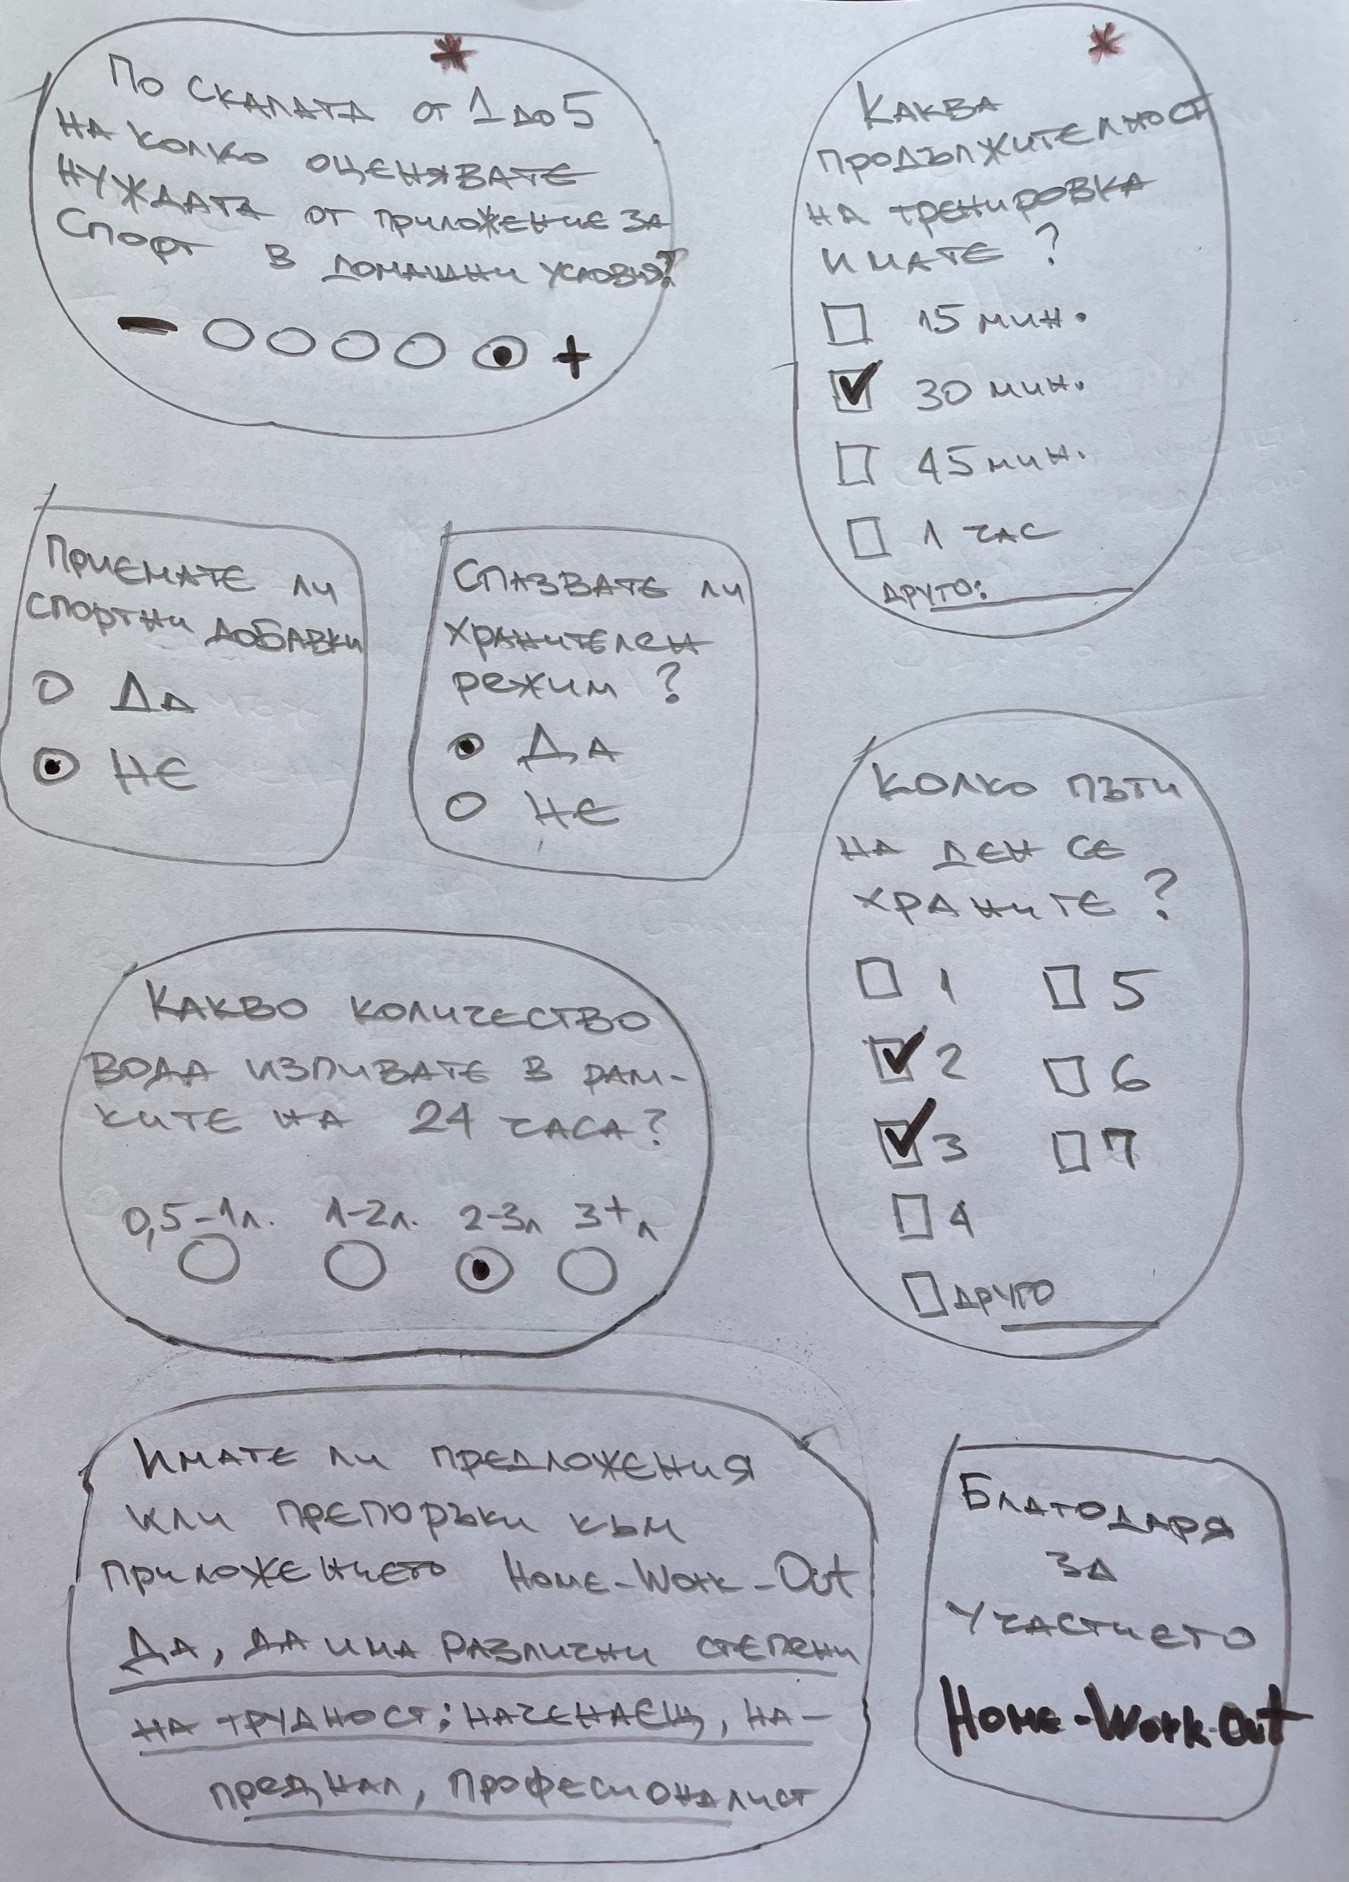 *
По скалата от 1 до 5
на колко оценявате
нуждата от приложение за
спорт в домашни условия?
- +
*
Каква
продължителност
на тренировка
имате ?
15 мин.
✓ 30 мин.
45 мин.
1 час
друго:
Приемате ли
спортни добавки
Да
Не
Спазвате ли
хранителен
режим ?
Да
Не
Колко пъти
на ден се
храните ?
1 5
✓ 2 6
✓ 3 7
4
друго
Какво количество
вода изпивате в рам-
ките на 24 часа?
0,5-1л. 1-2л. 2-3л 3+л
Имате ли предложения
или препоръки към
приложението Home-Work-Out
Да, да има различни степени
на трудност: наченаещ, на-
преднал, професионалист
Благодаря
за
участието
Home-Work-Out